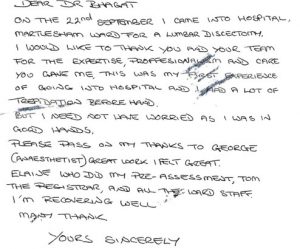 DEAR DR BHAGAT
ON THE 22ND SEPTEMBER I CAME INTO HOSPITAL,
MARTLESHAM WARD FOR A LUMBAR DISCECTOMY.
I WOULD LIKE TO THANK YOU AND YOUR TEAM
FOR THE EXPERTISE, PROFFESIONALISM AND CARE
YOU GAVE ME, THIS WAS MY FIRST EXPERIENCE
OF GOING INTO HOSPITAL AND I HAD A LOT OF
BEFORE HAND.
BUT I NEED NOT HAVE WORRIED AS I WAS IN
GOOD HANDS.
PLEASE PASS ON MY THANKS TO GEORGE
(ANAESTHETIST) GREAT WORK I FELT GREAT.
ELAINE WHO DID MY PRE-ASSESSMENT, TOM
THE REGISTRAR, AND ALL THE WARD STAFF.
I'M RECOVERING WELL.
MANY THANK
YOURS SINCERELY